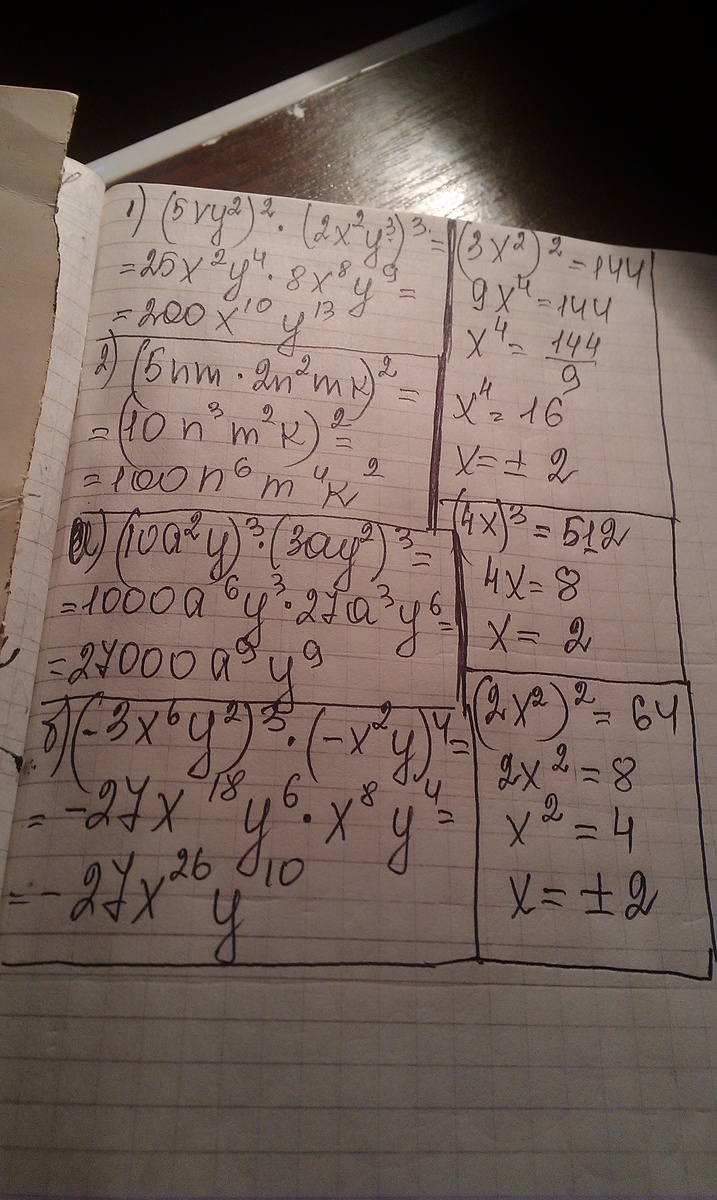 1) (5xy²)² · (2x²y³)³ =
= 25x²y⁴ · 8x⁸y⁹ =
= 200x¹⁰y¹³
2) (5nm · 2n²mк)² =
= (10n³m²к)² =
= 100n⁶m⁴к²
а) (10a²y)³ · (3ay²)³ =
= 1000a⁶y³ · 27a³y⁶ =
= 27000a⁹y⁹
б) (-3x⁶y²)³ · (-x²y)⁴ =
= -27x¹⁸y⁶ · x⁸y⁴ =
= -27x²⁶y¹⁰
(3x²)² = 144
9x⁴ = 144
x⁴ = 144/9
x⁴ = 16
x = ± 2
(4x)³ = 512
4x = 8
x = 2
(2x²)² = 64
2x² = 8
x² = 4
x = ± 2